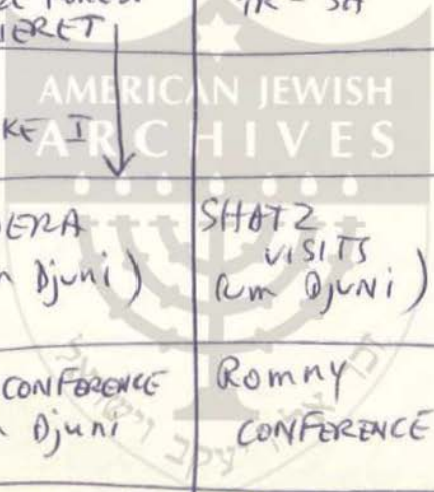 IERET
AMERICAN JEWISH
ARCHIVES
KE I
DERA
Djuni)
SHATZ
VISITS
(um DJUNI)
CONFERENCE
Djuni
Romny
CONFERENCE